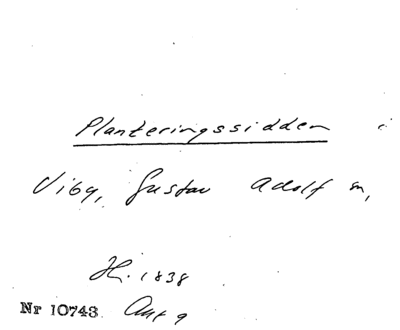 Planteringssidden
Viby, Gustav Adolf sn,
H. 1838
Nr 10743. Ant 9